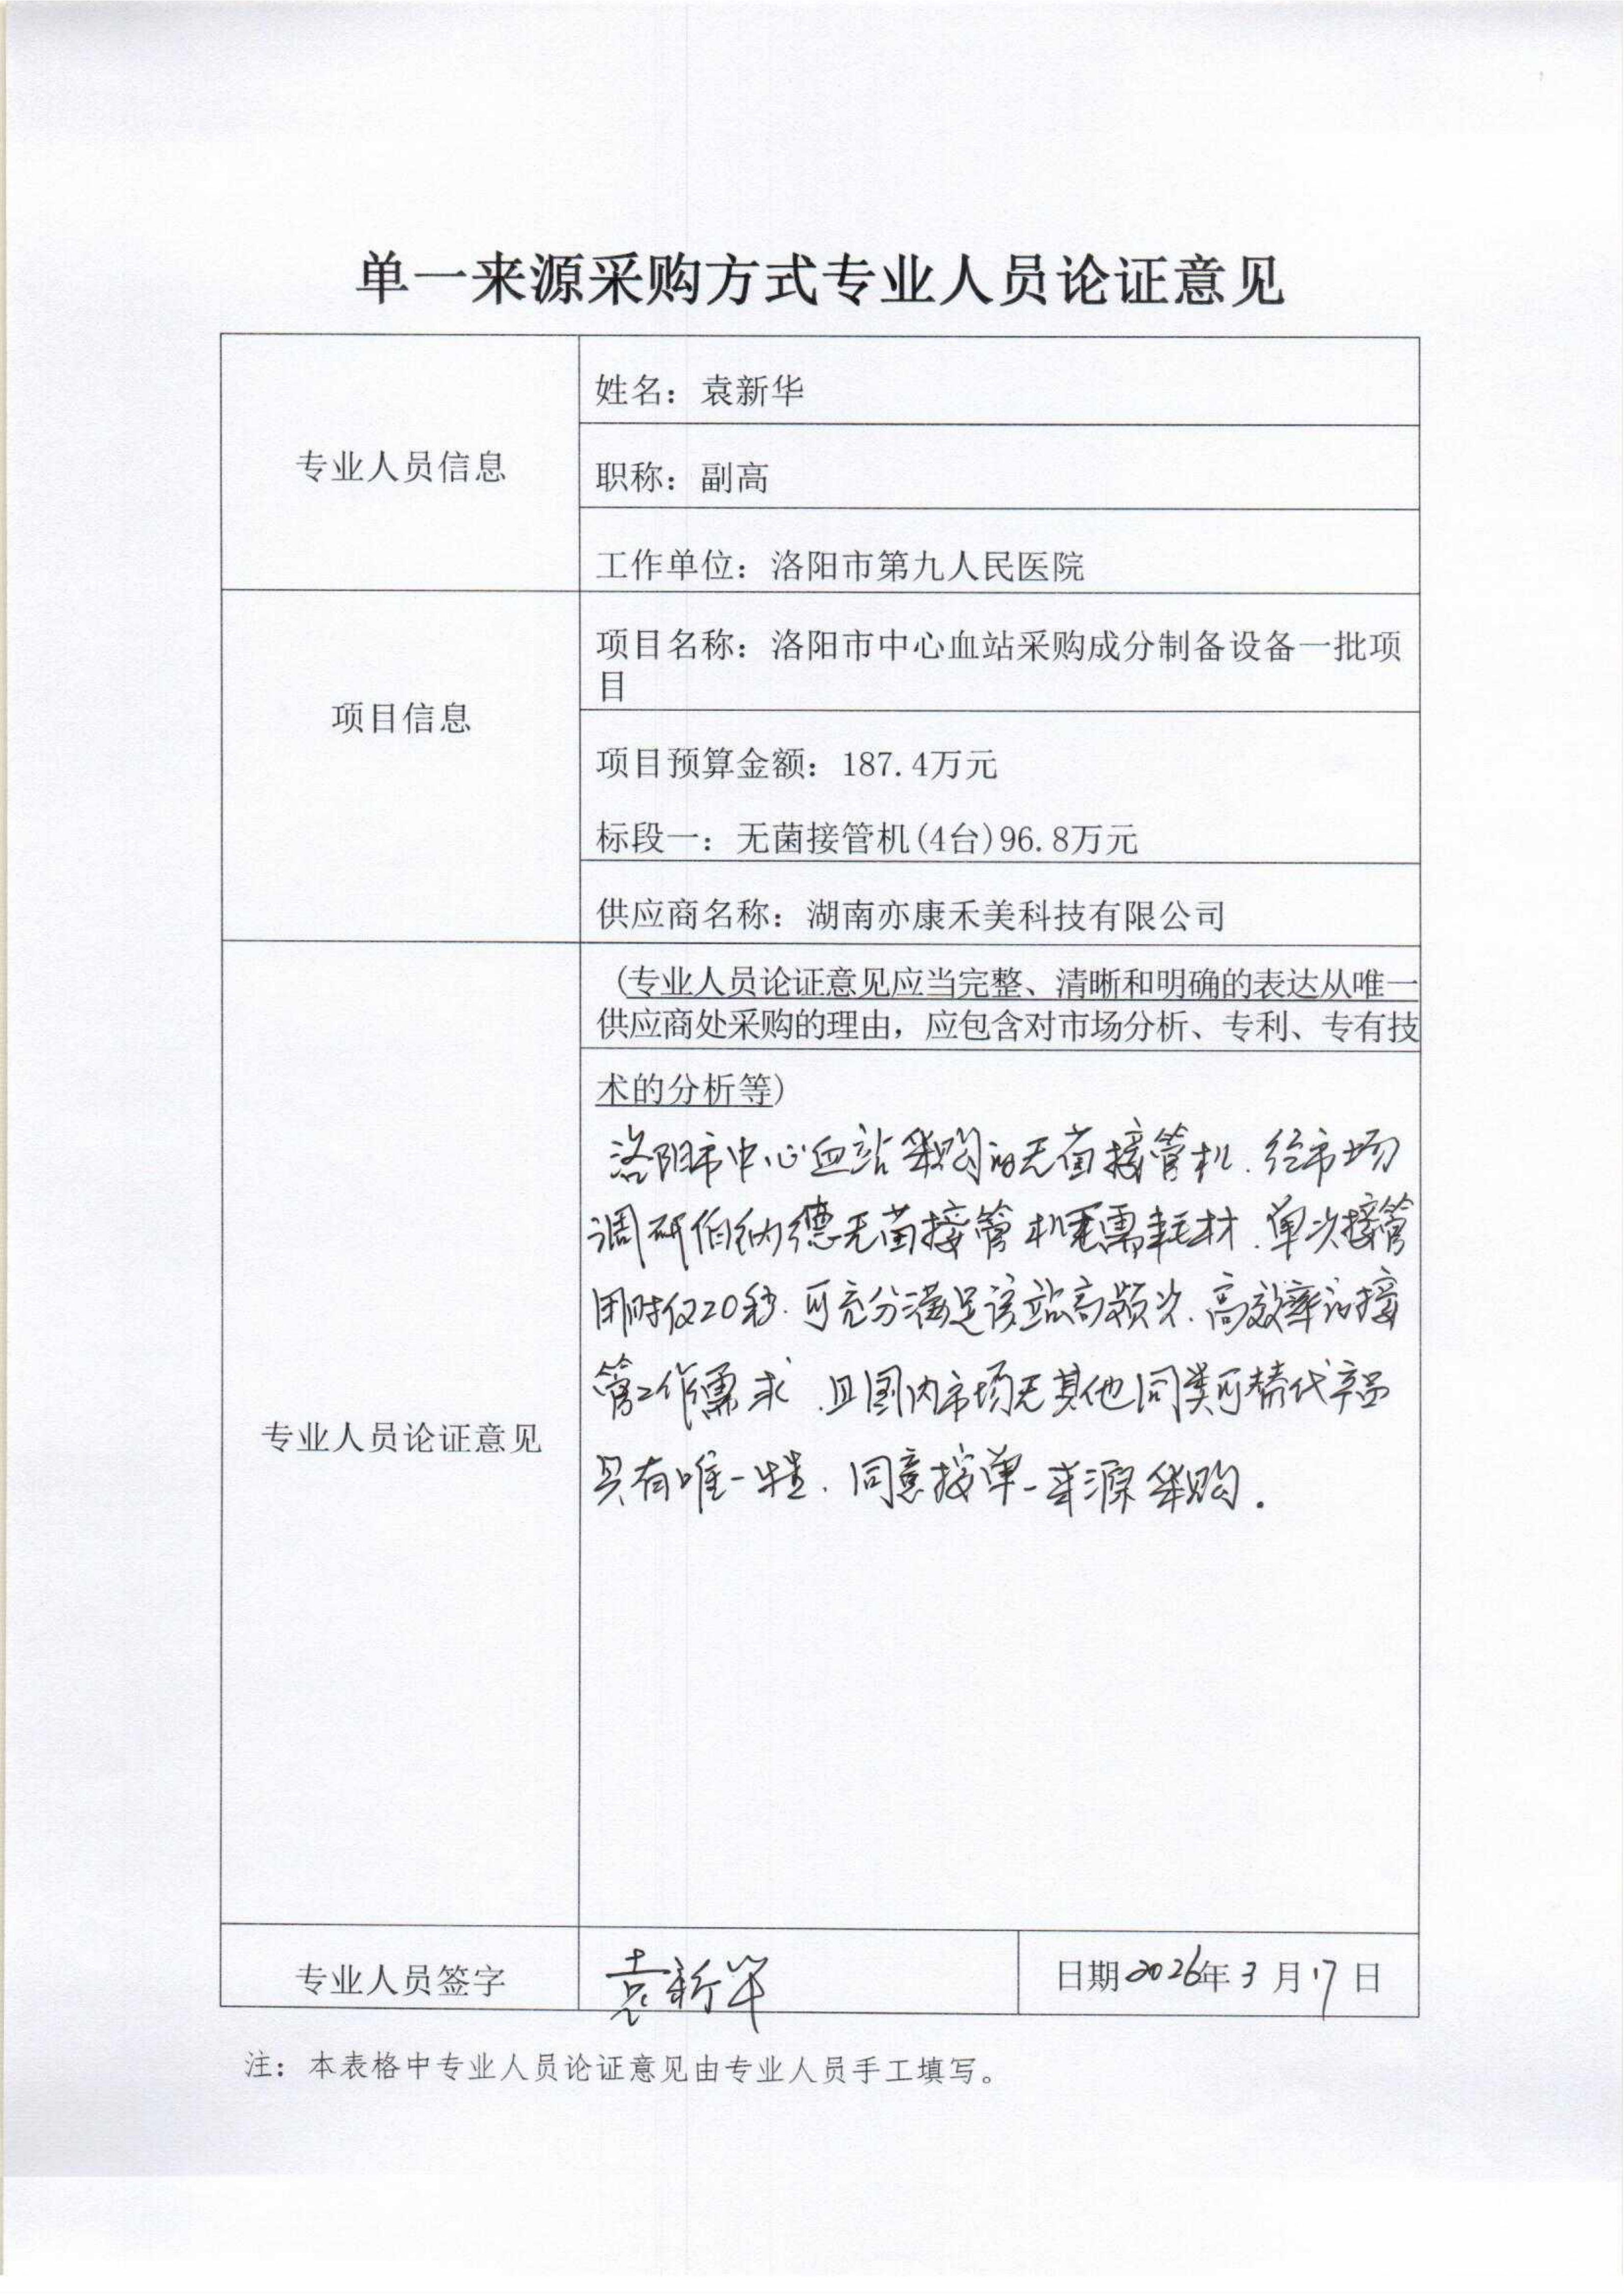 单一来源采购方式专业人员论证意见
专业人员信息
姓名：袁新华
职称：副高
工作单位：洛阳市第九人民医院
项目信息
项目名称：洛阳市中心血站采购成分制备设备一批项
目
项目预算金额：187.4万元
标段一：无菌接管机(4台)96.8万元
供应商名称：湖南亦康禾美科技有限公司
专业人员论证意见
(专业人员论证意见应当完整、清晰和明确的表达从唯一
供应商处采购的理由，应包含对市场分析、专利、专有技
术的分析等)
洛阳市中心血站采购的无菌接管机.经市场
调研伯纳德无菌接管机无需耗材.单次接管
用时仅20秒.可充分满足该站高频次.高效率的接
管工作需求.且国内市场无其他同类可替代产品
具有唯一性.同意按单一来源采购.
专业人员签字
袁新华
日期2026年3月17日
注：本表格中专业人员论证意见由专业人员手工填写。